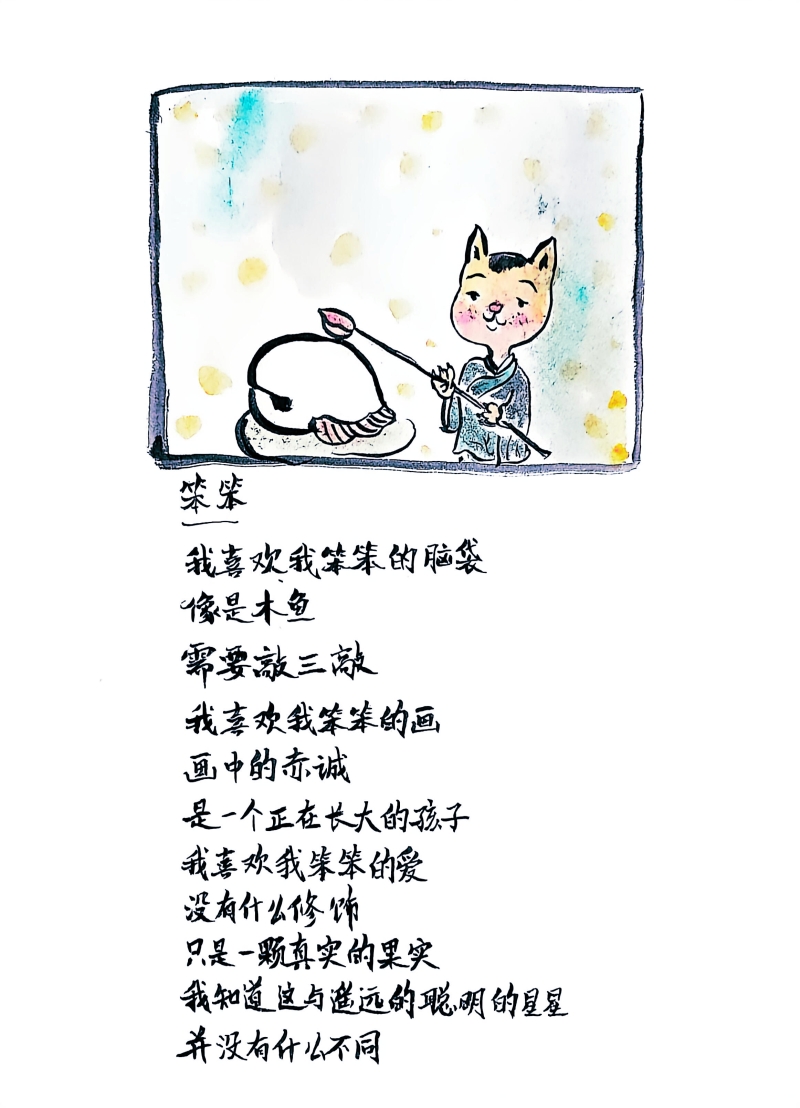 笨笨
我喜欢我笨笨的脑袋
像是木鱼
需要敲三敲
我喜欢我笨笨的画
画中的赤诚
是一个正在长大的孩子
我喜欢我笨笨的爱
没有什么修饰
只是一颗真实的果实
我知道这与遥远的聪明的星星
并没有什么不同